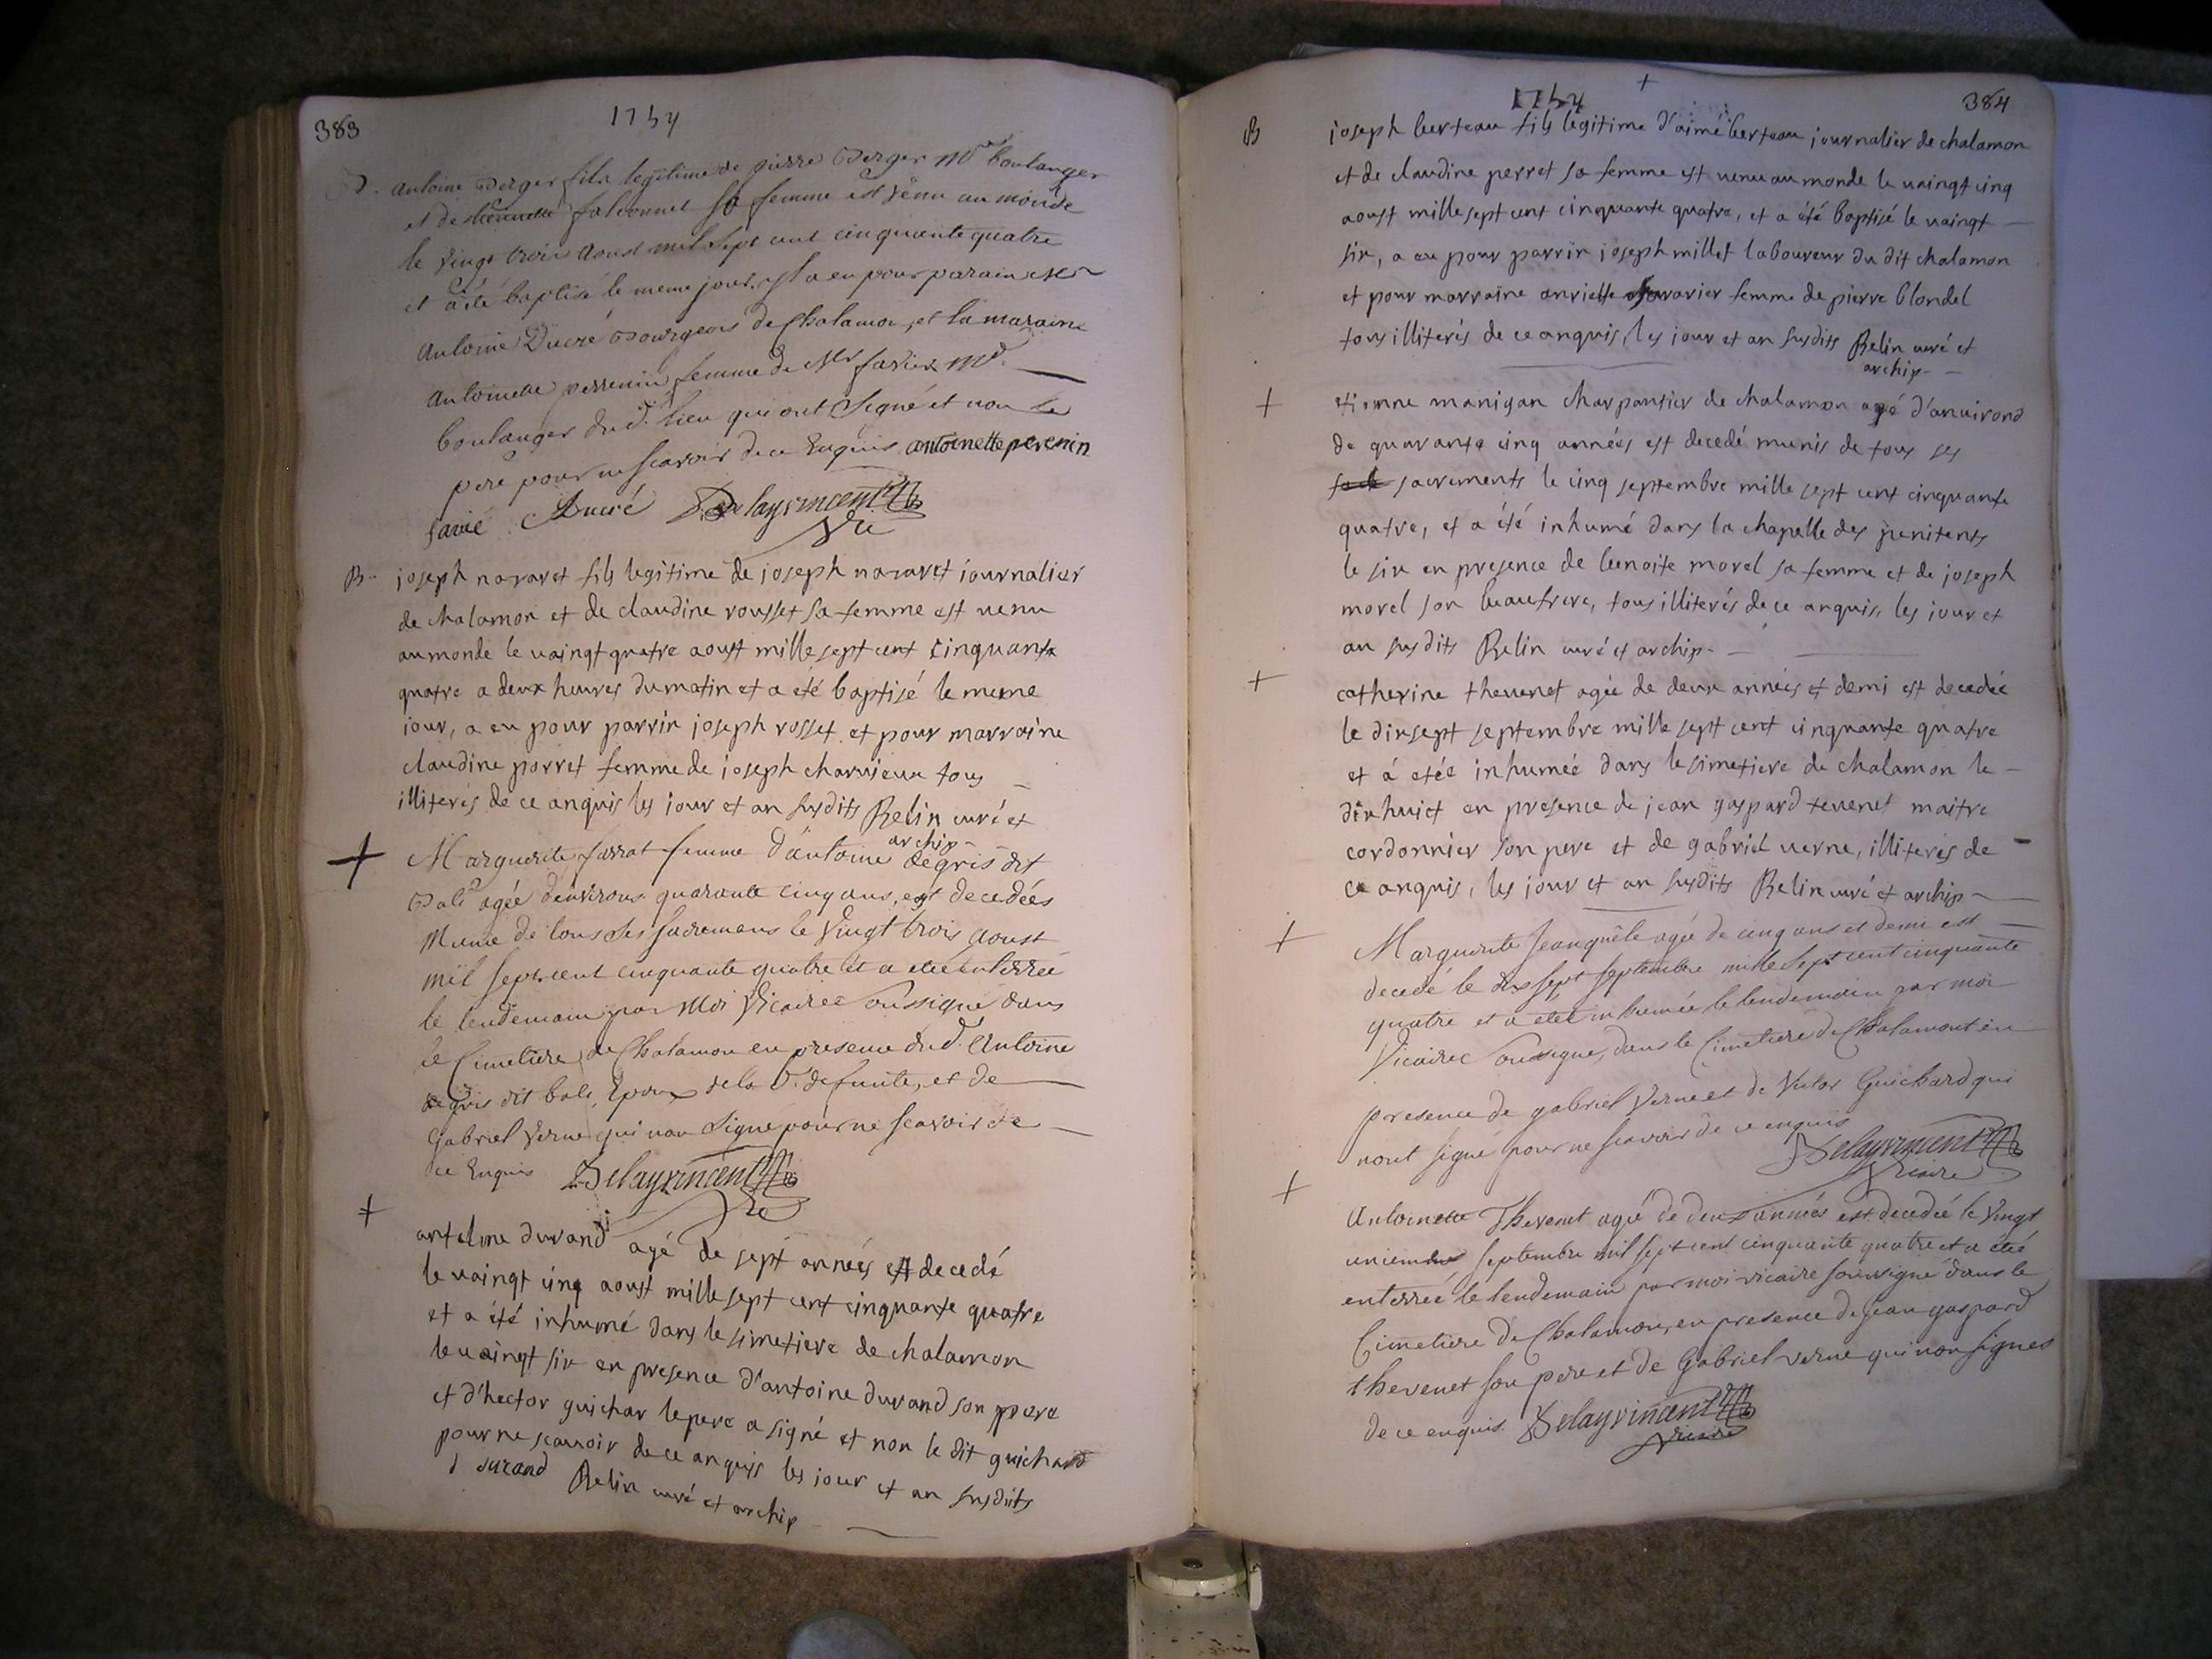 383
1754
B. antoine Berger fils legitime de pierre Berger md boulanger
et de falconnet sa femme est venu au monde
le vingt trois aoust mil sept cent cinquante quatre
et a été baptisé le meme jour. Il a eu pour parain Mr
Antoine Ducré Bourgeois de Chalamon, et la maraine
Antoinette perrenin femme de Mr favier md.
boulanger dud. lieu qui ont signé et non le
pere pour ne scavoir de ce Enquis antoinette perenin
favié Ducré Delayvincent
Vre
B. joseph navaret fils legitime de joseph navaret journalier
de chalamon et de claudine rousset sa femme est venu
au monde le vaingt quatre aoust mille sept cent cinquante
quatre a deux heures du matin et a eté baptisé le meme
jour, a eu pour parrin joseph rosset et pour marraine
claudine porret femme de joseph charvieux tous
illiterés de ce anquis les jour et an susdits Relin curé et
archip-
+ Marguerite farrat femme d'antoine degris dit
Bale agée d'environs quarante cinq ans, est decedées
Munie de tous ses sacremens le vingt trois aoust
mil sept cent cinquante quatre et a eté enterrée
le lendemain par Moi Vicairee soussigné dans
le Cimetiere de Chalamon en presence dud. Antoine
degris dit bale, Epoux de la d. defunte, et de
Gabriel Verne qui non signé pour ne scavoir de
ce Enquis Delayvincent
Vre
+ antelme durand agé de sept années est decedé
le vaingt cinq aoust mille sept cent cinquante quatre
et a été inhumé dans le simetiere de chalamon
le vaingt six en presence d'antoine durand son pere
et d'hector guichar le pere a signé et non le dit guichard
pour ne scavoir de ce anquis les jour et an susdits
d durand Relin curé et archip
384
+
1754
B joseph berteau fils legitime d'aimé berteau journalier de chalamon
et de claudine perret sa femme est venu au monde le vaingt cinq
aoust mille sept cent cinquante quatre, et a été baptisé le vaingt
six, a eu pour parrin joseph millet laboureur du dit chalamon
et pour marraine anriette femme de pierre blondel
tous illiterés de ce anquis, les jour et an susdits Relin curé et
archip-
+ etienne manigan charpantier de chalamon agé d'anvirond
de quarante cinq années est decedé munis de tous ses
sacrements le cinq septembre mille sept cent cinquante
quatre, et a été inhumé dans la chapelle des penitents
le six en presence de benoite morel sa femme et de joseph
morel son beaufrere, tous illiterés de ce anquis, les jour et
an susdits Relin curé et archip-
+ catherine thevenet agée de deux années et demi est decedée
le dixsept septembre mille sept cent cinquante quatre
et á etée inhumée dans le simetiere de chalamon le
dixhuict en presence de jean gaspard tevenet maitre
cordonnier son pere et de gabriel verne, illiterés de
ce anquis, les jour et an susdits Relin curé et archip-
+ Marguerite Jeanquêle agée de cinq ans et demi est
decedé le dix sept septembre mille sept cent cinquante
quatre et a eteé inhumée le lendemain par moi
Vicairee soussigné, dans le Cimetiere de Chalamont en
presence de gabriel Verne et de Victor Guichard qui
nont signé pour ne scavoir de ce enquis
Delayvincent
Vicaire
+ Antoinette Thevenet agé de deux années est decedée le vingt
unieme septembre mil sept cent cinquante quatre et a été
enterrée le lendemain par moi vicaire soussigné dans le
Cimetiere de Chalamon, en presence de jean gaspard
thevenet son pere et de Gabriel verne qui non signes
de ce enquis. Delayvincent
vicaire